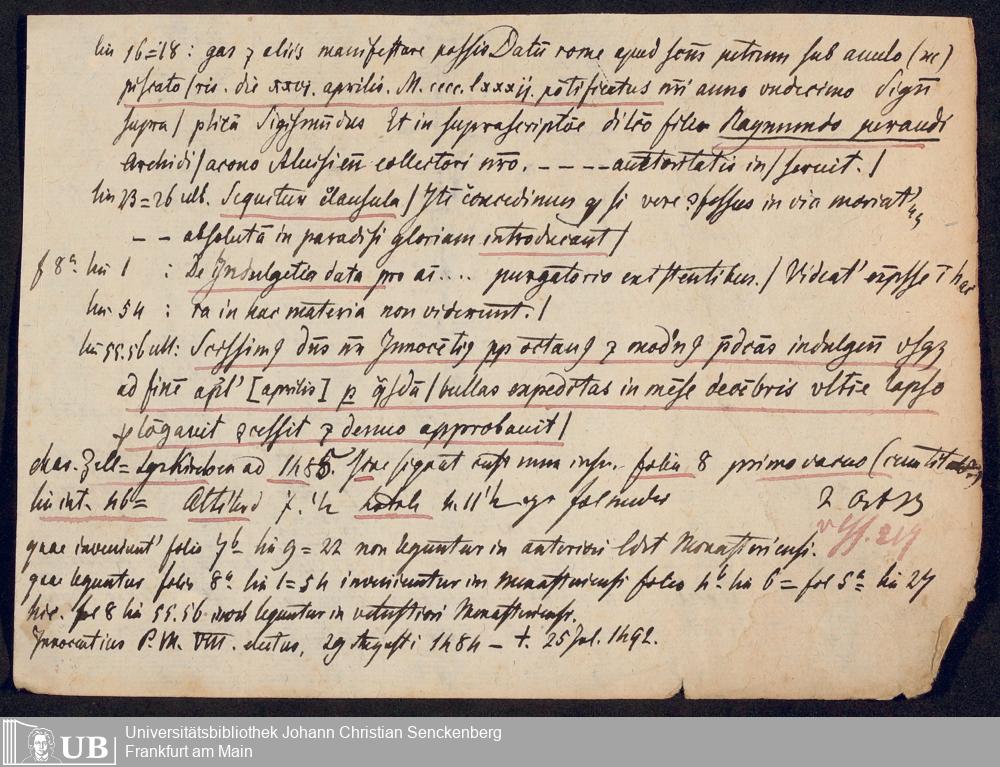 lin 16=18: gas ⁊ aliis manifestare possis Datū rome apud sctm̄ petrum sub anulo (sic)
piscato/ris. die xxvi. aprilis. M. cccc. lxxxij. pōtificatus nr̄i anno vndecimo Sign̄
supra/ plicā Sigismūdus Et in suprascriptōe dilc̄o filio Raymundo peraudi
Archidi/acono Alnisien̄ collectori nr̄o. ---- auctoritatis in/seruit./
lin 23=26 ult. Sequitur clausula/ Itē concedimus q si vere ꝯfessus in via moriat'
-- absolutā in paradisi gloriam introducant/
f 8ᵃ lin 1 : De Indulgētia data pro ai .... purgatorio existentibus./ Videat' exp̄sse ī hac
lin 54 : ra in hac materia non viderunt./
lin 55.56 ult: Sctissimꝰ dn̄s nr̄ Innocētiꝰ pp octauꝰ ⁊ modnꝰ p̄dcās indulgen̄ vsqꝫ
ad finē apl' [aprilis] ꝑ /bullas expeditas in mēse decēbris vltīe lapso
ꝓlōgauit ꝯcessit ⁊ denuo approbauit/
char. Zell= Lyskirchen ad 1485. folia 8 primo vacuo
lin int. 46=
quae inveniunt' folio 7ᵇ lin 9=22 non leguntur in anteriori Edit Monasteriensi.
quae leguntur folio 8ᵃ lin 1=54 inveniuntur in Monasteriensi folio 4ᵇ lin 6= fol 5ᵃ lin 27
hic. fol 8 lin 55.56 leguntur in vetustiori Monasteriensi.
Innocentius P. M. VIII. electus, 29 Augusti 1484 - †. 25 Jul. 1492.
UB
Universitätsbibliothek Johann Christian Senckenberg
Frankfurt am Main